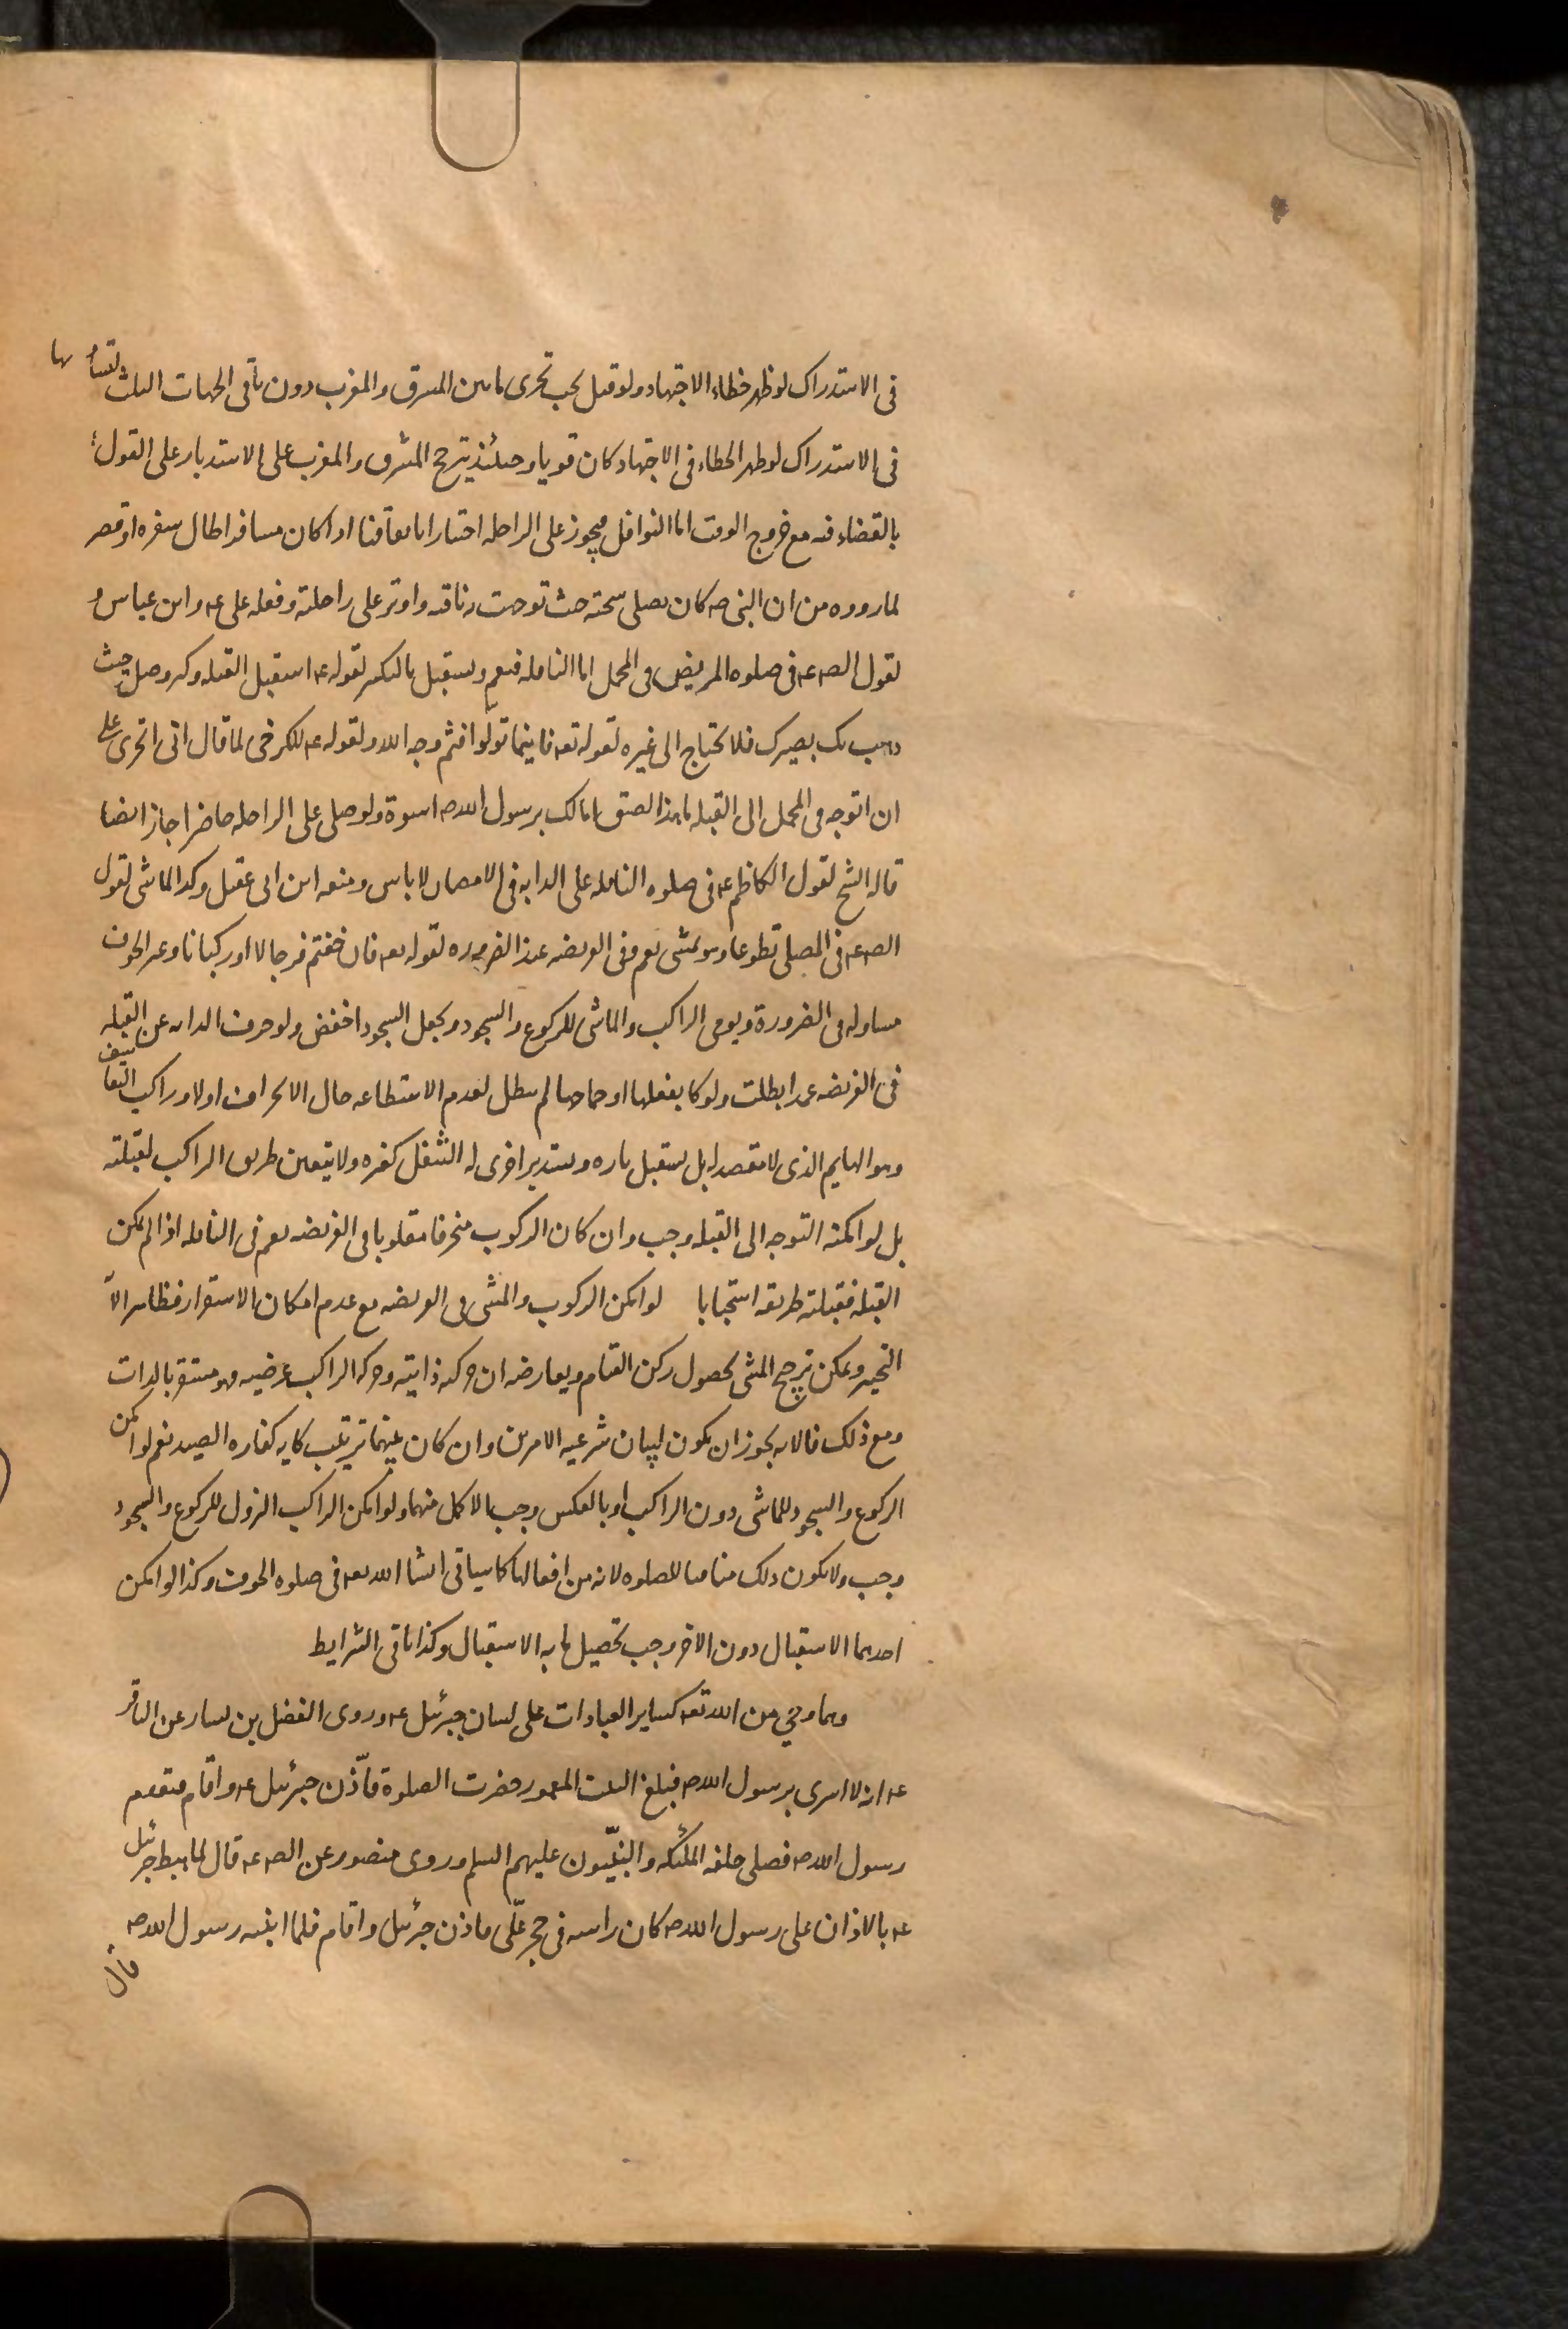 فى الاستدراك لو ظهر خطاء الاجتهاد ولو قيل يجب تحرى ما بين المشرق والمغرب دون باقى الجهات الثلث لتساويها
فى الاستدراك لو ظهر الخطاء فى الاجتهاد كان قويا وحينئذ يترجح المشرق والمغرب على الاستدبار على القول
بالقضاء فيه مع خروج الوقت اما النوافل فيجوز على الراحلة اختيارا باتفاقنا اذا كان مسافرا طال سفره او قصر
لما رووه من ان النبى صه كان يصلى سبحته حيث توجهت به ناقته واوتر على راحلته وفعله على عه وابن عباس و
لقول الصه عه فى صلوة المريض فى المحمل اما النافلة فنعم ويستقبل بالتكبير لقوله عه استقبل القبلة وكبر وصل حيث
ذهب بك بعيرك فلا يحتاج الى غيره لقوله تعه فاينما تولوا فثم وجه الله ولقوله عه للكرخى لما قال انى اتحرى على
ان اتوجه فى المحمل الى القبلة ما هذا الضيق امالك برسول الله صه اسوة ولو صلى على الراحلة حاضرا جاز ايضا
قاله الشيخ لقول الكاظم عه فى صلوة النافلة على الدابة فى الامصار لا باس ومنعه ابن ابى عقيل وكذا الماشى لقول
الصه عه فى المصلى تطوعا وهو يمشى نعم وفى الفريضة عند الضرورة لقوله تعه فان خفتم فرجالا او ركبانا وغير الخوف
مساو له فى الضرورة ويومى الراكب والماشى للركوع والسجود ويجعل السجود اخفض ولو حرف الدابة عن القبلة
فى الفريضة عمدا بطلت ولو كا بفعلها او جماحها لم يبطل لعدم الاستطاعة حال الانحراف اولا وراكب التعاسيف
وهو الهايم الذى لا مقصد له بل يستقبل تارة ويستدبر اخرى له التنفل كغيره ولا يتعين طريق الراكب لقبلته
بل لو امكنه التوجه الى القبلة وجب وان كان الركوب منحرفا مقلوبا فى الفريضة نعم فى النافلة اذا لم يمكن
القبلة فقبلته طريقه استحبابا لو امكن الركوب والمشى فى الفريضة مع عدم امكان الاستقرار فظاهر الا
التخيير ويمكن ترجيح المشى لحصول ركن القيام ويعارضه ان حركته ذاتية وحركة الراكب عرضية فهو مستقر بالذات
ومع ذلك فالاية يجوز ان يكون لبيان شرعية الامرين وان كان بينهما ترتيب كاية كفارة الصيد نعم لو امكن
الركوع والسجود للماشى دون الراكب او بالعكس وجب الاكمل منهما ولو امكن الراكب النزول للركوع والسجود
وجب ولا يكون ذلك منافيا للصلوة لانه من افعالها كما سياتى انشا الله تعه فى صلوة الخوف وكذا لو امكن
احدهما الاستقبال دون الاخر وجب تحصيل ما به الاستقبال وكذا باقى الشرايط
وهما وحى من الله تعه كساير العبادات على لسان جبرئيل عه وروى الفضل بن يسار عن الباقر
عه انه لما اسرى برسول الله صه فبلغ البيت المعمور حضرت الصلوة فاذّن جبرئيل عه واقام فتقدم
رسول الله صه فصلى خلفه الملئكة والنبيّون عليهم السلم وروى منصور عن الصه عه قال لما هبط جبرئيل
عه بالاذان على رسول الله صه كان راسه فى حجر علّى فاذن جبرئيل واقام فلما انتبه رسول الله صه
قال